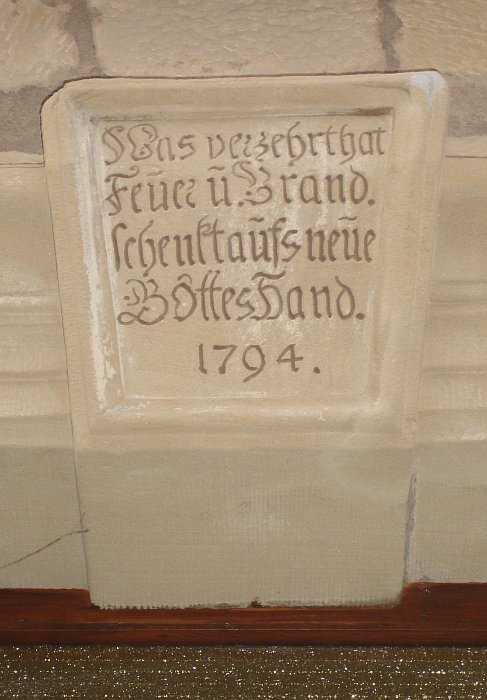 Was verzehrt hat
Feūer ū Brand.
schenkt aūfs neūe
Gôttes Hand.
1794.